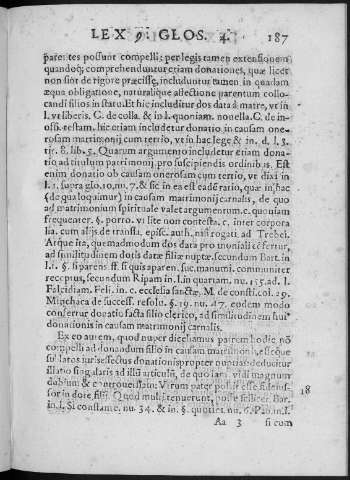 LEX 9. GLOS. 4. 187
parentes possunt compelli: per legis tamen extensionem
quandoq; comprehenduntur etiam donationes, quæ licet
non sint de rigore præcisæ, includuntur tamen in quadam
æqua obligatione, naturalique affectione parentum collo-
candi filios in statu. Et hic includitur dos data à matre, vt in
l. vt liberis. C. de colla. & in l. quoniam. nouella. C. de in-
offi. testam. hic etiam includetur donatio in causam one-
rosam matrimonij cum tertio, vt in hac lege & in. d. l. 3.
tit. 8. lib. 5. Quarum argumento includetur etiam dona-
tio ad titulum patrimonij pro suscipiendis ordinibus. Est
enim donatio ob causam onerosam cum tertio, vt dixi in
l. 1. supra glo. 10. nu. 7. & sic in ea est eadẽ ratio, quæ in hac
(de qua loquimur) in causam matrimonij carnalis, de quo
ad matrimonium spirituale valet argumentum. c. quoniam
frequenter. §. porro. vt lite non contesta. c. inter corpora
lia. cum alijs de transla. episc. auth. nisi rogati. ad Trebel.
Atque ita, quemadmodum dos data pro monialι cẽsertur,
ad similitudinem dotis datæ filiæ nuptæ. secundum Bart. in
l. 1. §. si parens ff. si quis a paren. fue. manumi. communiter
receptus, secundum Ripam in l. in quartam. nu. 135. ad l.
Falcidiam. Feli. in c. ecclesia sanctæ. M. de consti. col. 29.
Minchaca de success. resolu. §. 19. nu. 47. eodem modo
consertur donatio facta filio clerico, ad similitudinem sui
donationis in causam matrimonij carnalis.
Ex eo autem, quod nuper diceba​mus patrem hodie nõ
compelli ad donandum filio in causam matrimonij,
latius iuris effectus donationis propter nuptias deducitur
illatio singularis ad illũ articulũ, de quo iam vidi magnum
dubium & controuersiam: Vtrum pater possit esse fideiuf-
sor in dote filij? Quod multi tenuerunt, posse scilicet Bar.
in. l. Si constante. nu. 34. & in. §. quoties. nu. 6. Pau. in. l.
18
Aa 3 si cum